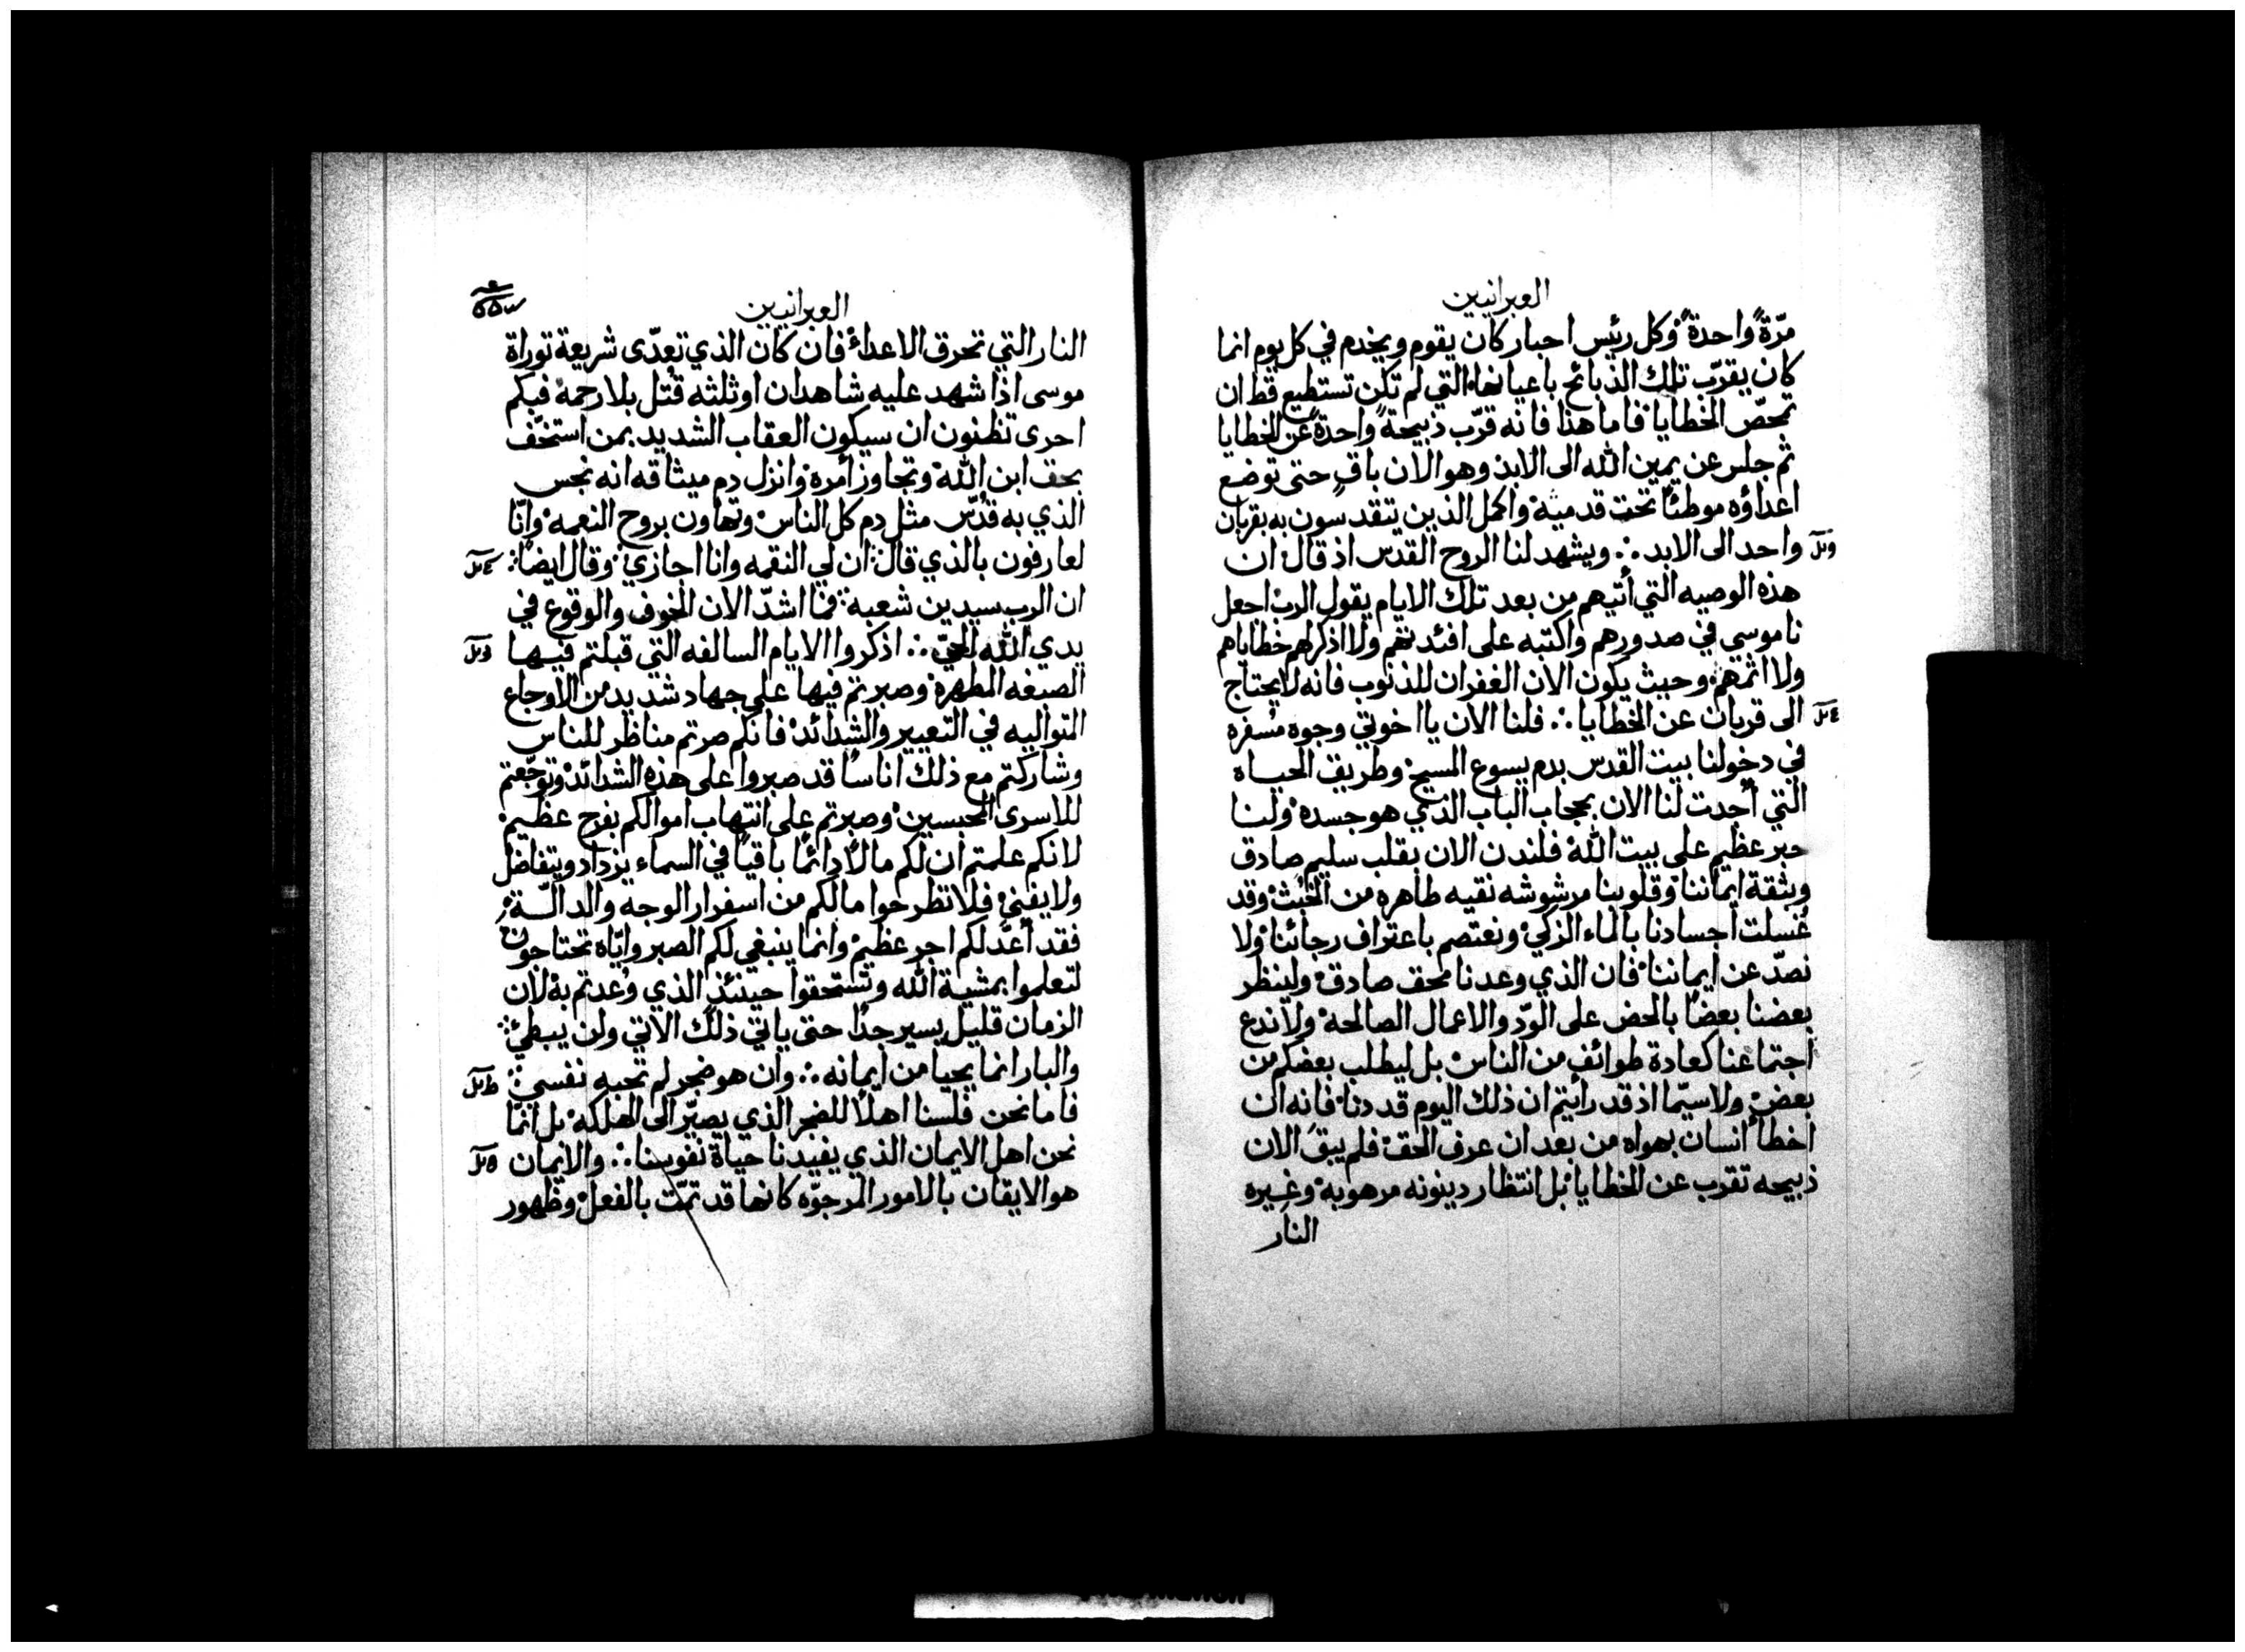 العبرانيين
مرّةً واحدةً وكل رئيس احبار كان يقوم ويخدم في كل يوم انما
كان يقرّب تلك الذبائح باعيانها التي لم تكن تستطيع قط ان
تمحّص الخطايا فاما هذا فانه قرّب ذبيحةً واحدةً عن الخطايا
ثم جلس عن يمين الله الى الابد وهو الان باقٍ حتى توضع
اعداؤه موطئًا تحت قدميه واكمل الذين يتقدسون به بقربان
واحد الى الابد ∴ ويشهد لنا الروح القدس اذ قال ان
هذه الوصيه التي أتيهم من بعد تلك الايام يقول الرب اجعل
ناموسي في صدورهم واكتبه على افئدتهم ولا اذكر لهم خطاياهم
ولا اثمهم وحيث يكون الان الغفران للذنوب فانه لا يحتاج
الى قربان عن الخطايا ∴ فلنا الان يا اخوتي وجوه مسفره
في دخولنا بيت القدس بدم يسوع المسيح وطريق الحياه
التي أجدت لنا الان بحجاب الباب الذي هو جسده ولنا
حبر عظيم على بيت الله فلندن الان بقلب سليم صادق
وبثقة ايماننا وقلوبنا مرشوشه نقيه طاهره من الخبث وقد
غسلت اجسادنا بالماء الزكي ونعتصم باعتراف رجائنا ولا
نصدّ عن ايماننا فان الذي وعدنا محق صادق ولينظر
بعضنا بعضًا بالحض على الودّ والاعمال الصالحه ولا ندع
اجتماعنا كعادة طوائف من الناس بل ليطلب بعضكم من
بعض ولاسيّما اذ قد رأيتم ان ذلك اليوم قد دنا فانه ان
اخطأ انسان بهواه من بعد ان عرف الحق فلم يبق الان
ذبيحه تقرب عن الخطايا بل انتظار دينونه مرهوبه وغيره
النار
العبرانيين
النار التي تحرق الاعداء فان كان الذي تعدّى شريعة توراة
موسى اذا شهد عليه شاهدان او ثلثه قُتل بلا رحمه فبكم
احرى تظنون ان سيكون العقاب الشديد بمن استخّف
بحق ابن الله وتجاوز أمره وانزل دم ميثاقه انه نجس
الذي به قدّس مثل دم كل الناس وتهاون بروح النعمه وانّا
لعارفون بالذي قال ان لي النقمه وانا اجازي وقال ايضًا
ان الرب سيدين شعبه فما اشدّ الان الخوف والوقوع في
يدي الله الحيّ ∴ اذكروا الايام السالفه التي قبلتم فيها
الصبغه المطهرة وصبرتم فيها على جهاد شديد من الاوجاع
المتواليه في التعيير والشدائد فانكم صرتم مناظر للناس
وشاركتم مع ذلك اناسًا قد صبروا على هذه الشدائد وتوجّعتم
للاسرى المحبسين وصبرتم على انتهاب اموالكم بفرح عظيم
لانكم علمتم ان لكم مالًا دائمًا باقيًا في السماء يزداد ويتفاضل
ولا يفنى فلا تطرحوا ما لكم من اسفرار الوجه والدالّة
فقد أعدّ لكم اجر عظيم وانما ينبغي لكم الصبر وايّاه تحتاجون
لتعلموا بمشية الله وتستحقوا حينئذٍ الذي وُعدتم به لان
الزمان قليل يسير جدًا حتى ياتي ذلك الاتي ولن يبطئ
والبار انما يحيا من ايمانه ∴ وان هو ضجر لم تحبه نفسي
فاما نحن فلسنا اهلًا للضجر الذي يصيّر الى الهلكه بل انمّا
نحن اهل الايمان الذي يفيدنا حياة نفوسنا ∴ والايمان
هو الايقان بالامور المرجوّه كانها قد تمّت بالفعل وظهور